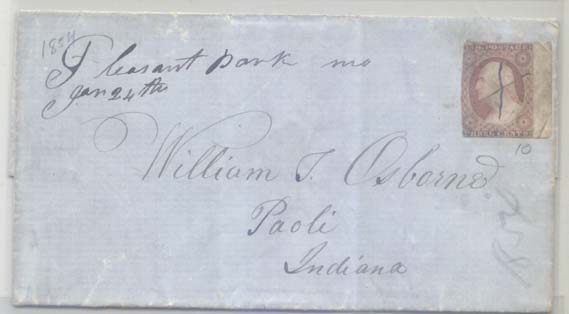 1854
Pleasant Park mo
Jan 24th
U.S. POSTAGE
THREE CENTS
10
William T. Osborne
Paoli
Indiana